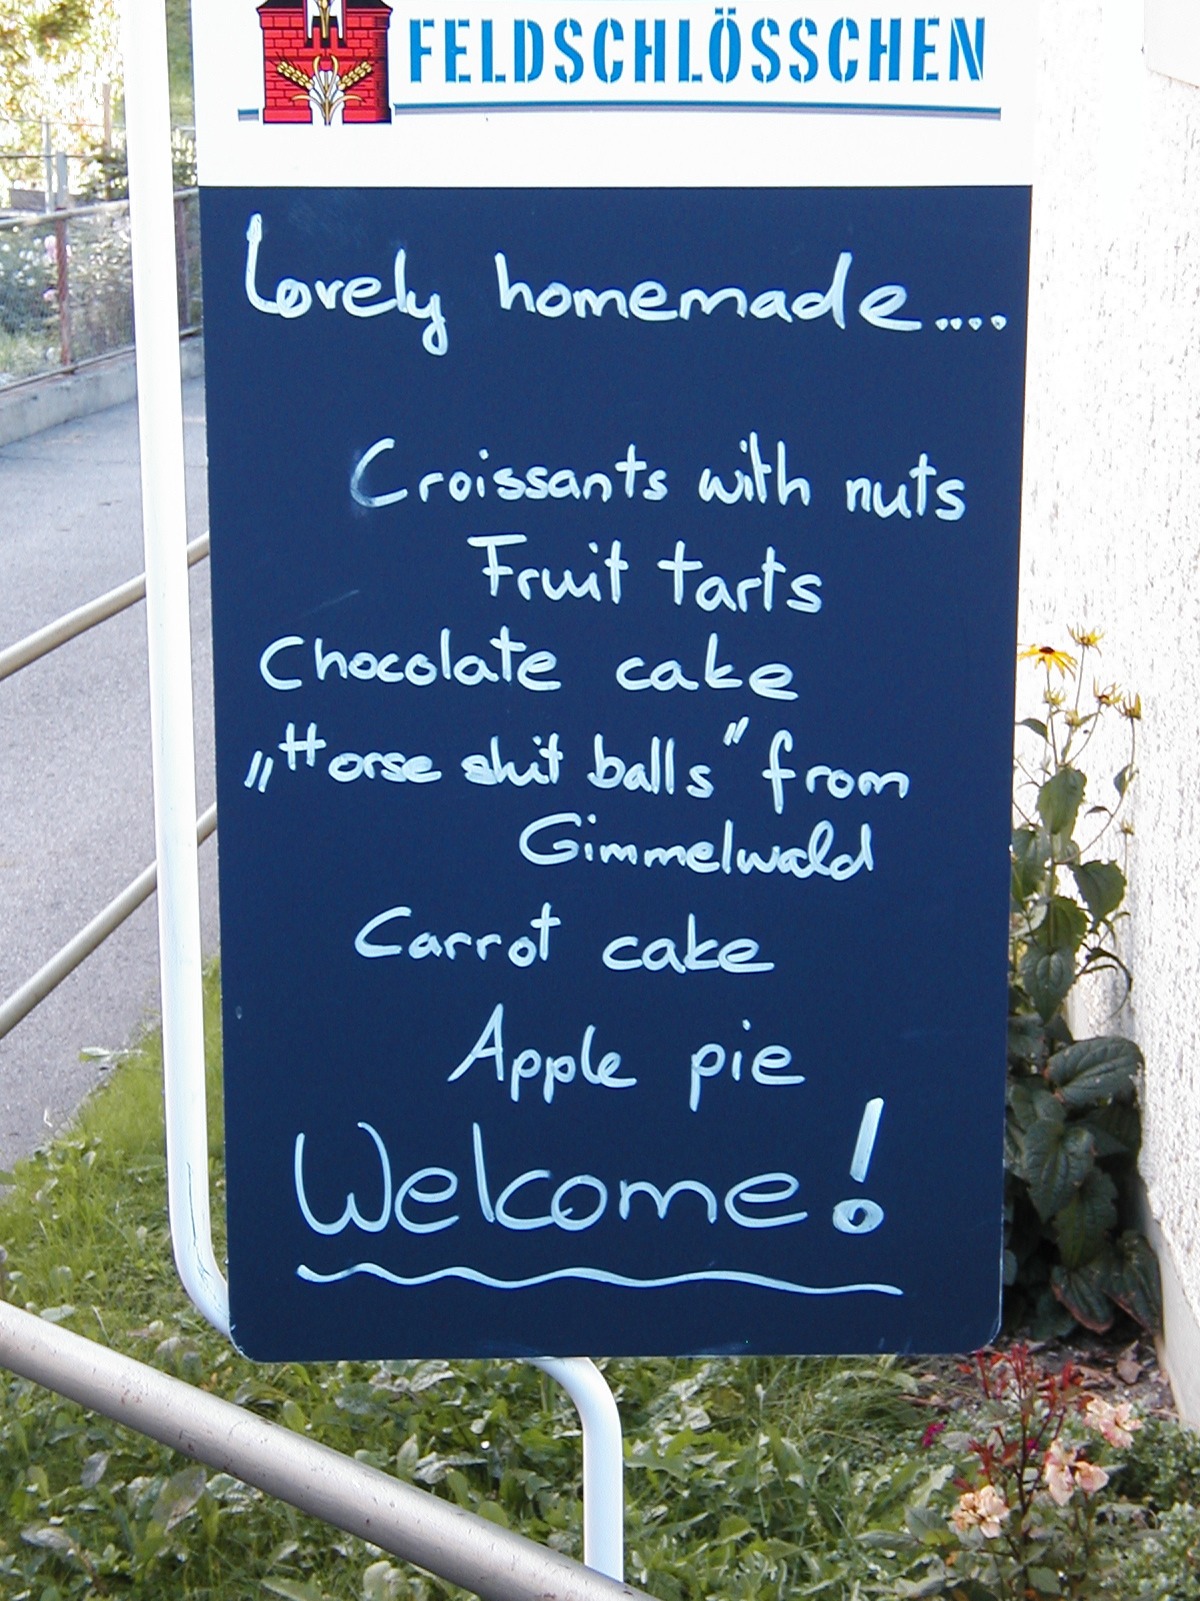 FELDSCHLÖSSCHEN
Lovely homemade....
Croissants with nuts
Fruit tarts
Chocolate cake
„Horse shit balls" from
Gimmelwald
Carrot cake
Apple pie
Welcome!